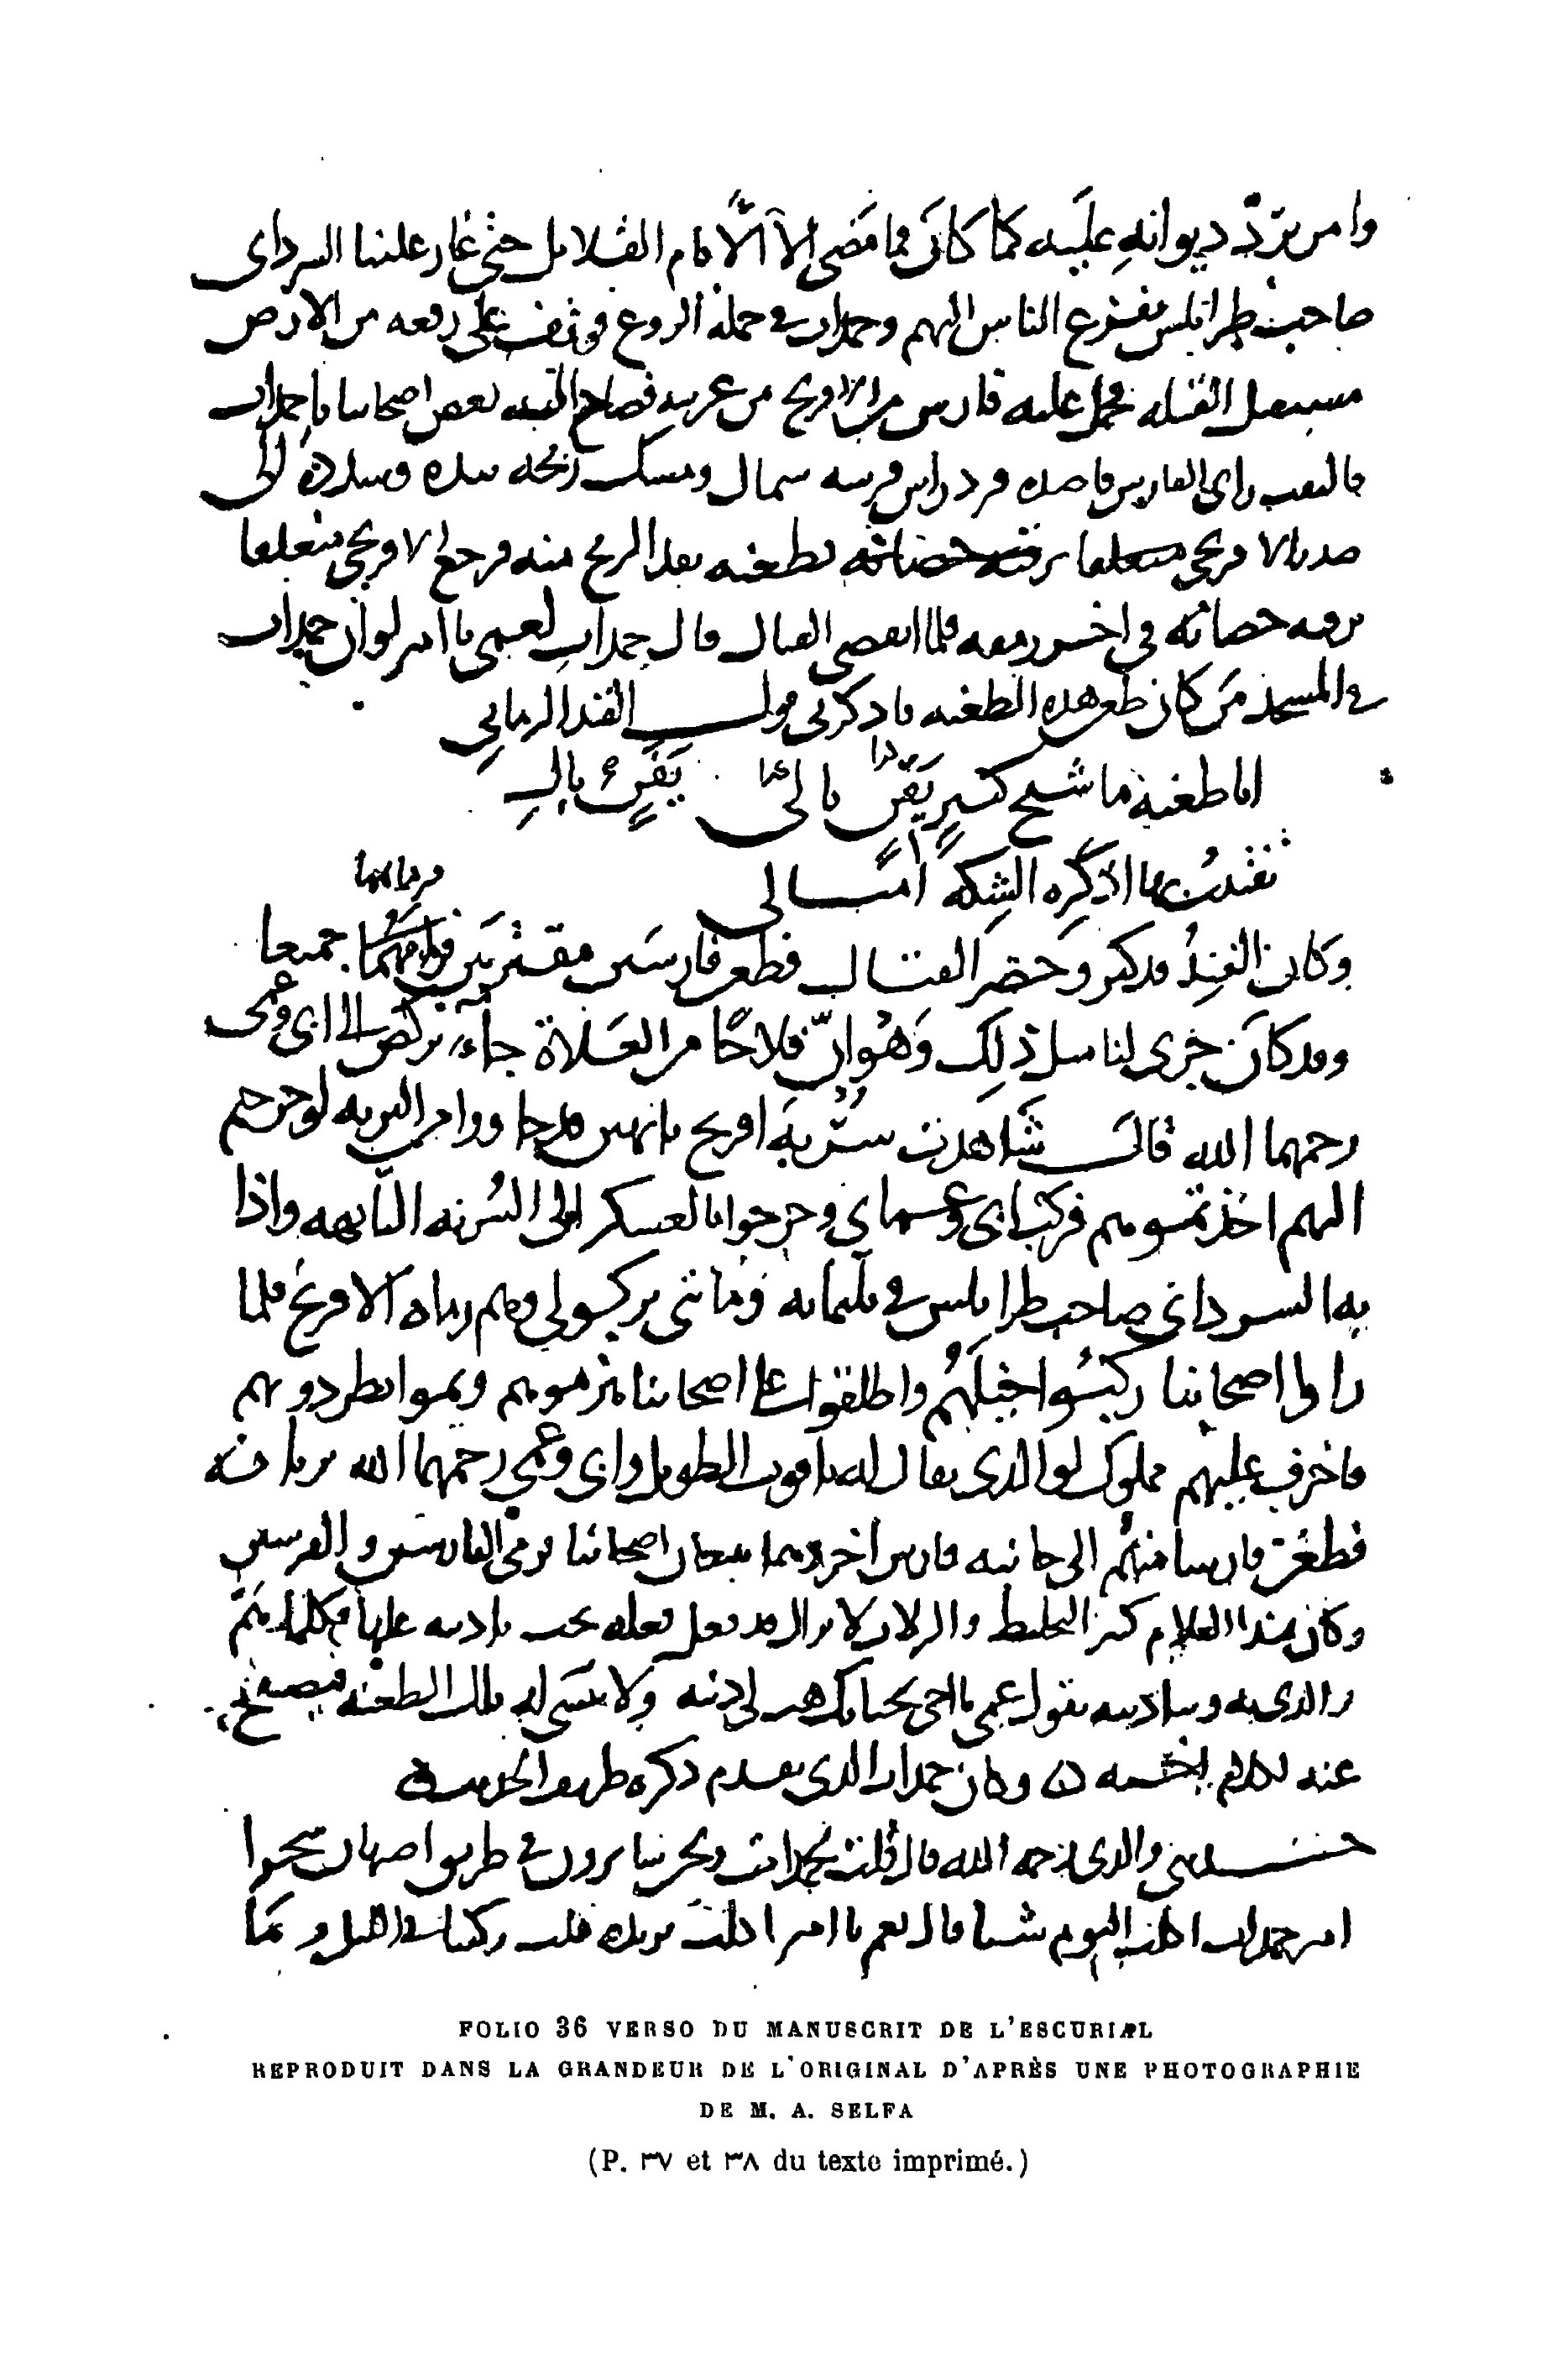 وامر برد ديوانه عليه كما كان فما مضى الا الايام القلايل حتى غار علينا السرداى
صاحب طرابلس ففزع الناس اليهم وحمدات في جملة الروع فوقف على رفعه من الارض
مستقبل القبله فحمل عليه فارس من الافرنج من غربيه فصاح اليه بعض اصحابنا يا حمدات
فالتفت راى الفارس قاصده فرد راس فرسه سمال ومسك رمحه بيده وسدده الى
صدر الافرنجي فطعنه نفذ الرمح منه فرجع الافرنجي متعلقا
برقبه حصانه في اخر رمقه فلما انقضى القتال قال حمدات لعمي يا امير لو ان حمدات
في المسجد من كان طعن هذه الطعنه فاذكرنى قول الفند الزماني
ايا طعنة ما شيخ كبير يفن بالى
تفتيت بها اذ كره الشكه امثالى
وكان الفند قد كبر وحضر القتال فطعن فارسين مقترنين فرماهما جميعا
وقد كان جرى لنا مثل ذلك وهو ان فلاحا من العلاة جاء يركض الى ابي وعمي
رحمهما الله قال شاهدت سربة افرنج تايهين قد جاووا من البريه لو خرجتم
اليهم اخذتموهم فركب ابي وعمماي وخرجوا بالعسكر الى السربه التايهه واذا
به السرداني صاحب طرابلس في ثلثمايه فارس ومايتى تركبولي وهم رماه الافرنج فلما
راوا اصحابنا ركبوا خيلهم واطلقوا على اصحابنا هزموهم وتموا يطردونهم
فانحرف عليهم مملوك لوالدى يقال له ياقوت الطويل وابي وعمي رحمهما الله يريانه
فطعن فارسا منهم الى جانبه فارس اخر وهما يتبعان اصحابنا فرمى الفارسين والفرسين
وكان هذا الغلام كثير التخليط والزلات لا يزال قد فعل فعله يجب تاديبه عليها فكلما هم
والدى به وبتاديبه يقول عمي يا اخي بحياتك هب لي ذنبه ولا تنسى له تلك الطعنه فيصفح
عنه لكلام اخيه وكان حمدات الذى تقدم ذكره ظريف الحديث
حدثني والدى رحمه الله قال قلت لحمدات ونحن سايرون في طريق اصبهان سحرا
امير حمدات اكلت اليوم شيا قال نعم يا امير اكلت ثريده قلت ركبنا في الليل وما
FOLIO 36 VERSO DU MANUSCRIT DE L'ESCURIAL
REPRODUIT DANS LA GRANDEUR DE L'ORIGINAL D'APRÈS UNE PHOTOGRAPHIE
DE M. A. SELFA
(P. ٣٧ et ٣٨ du texte imprimé.)